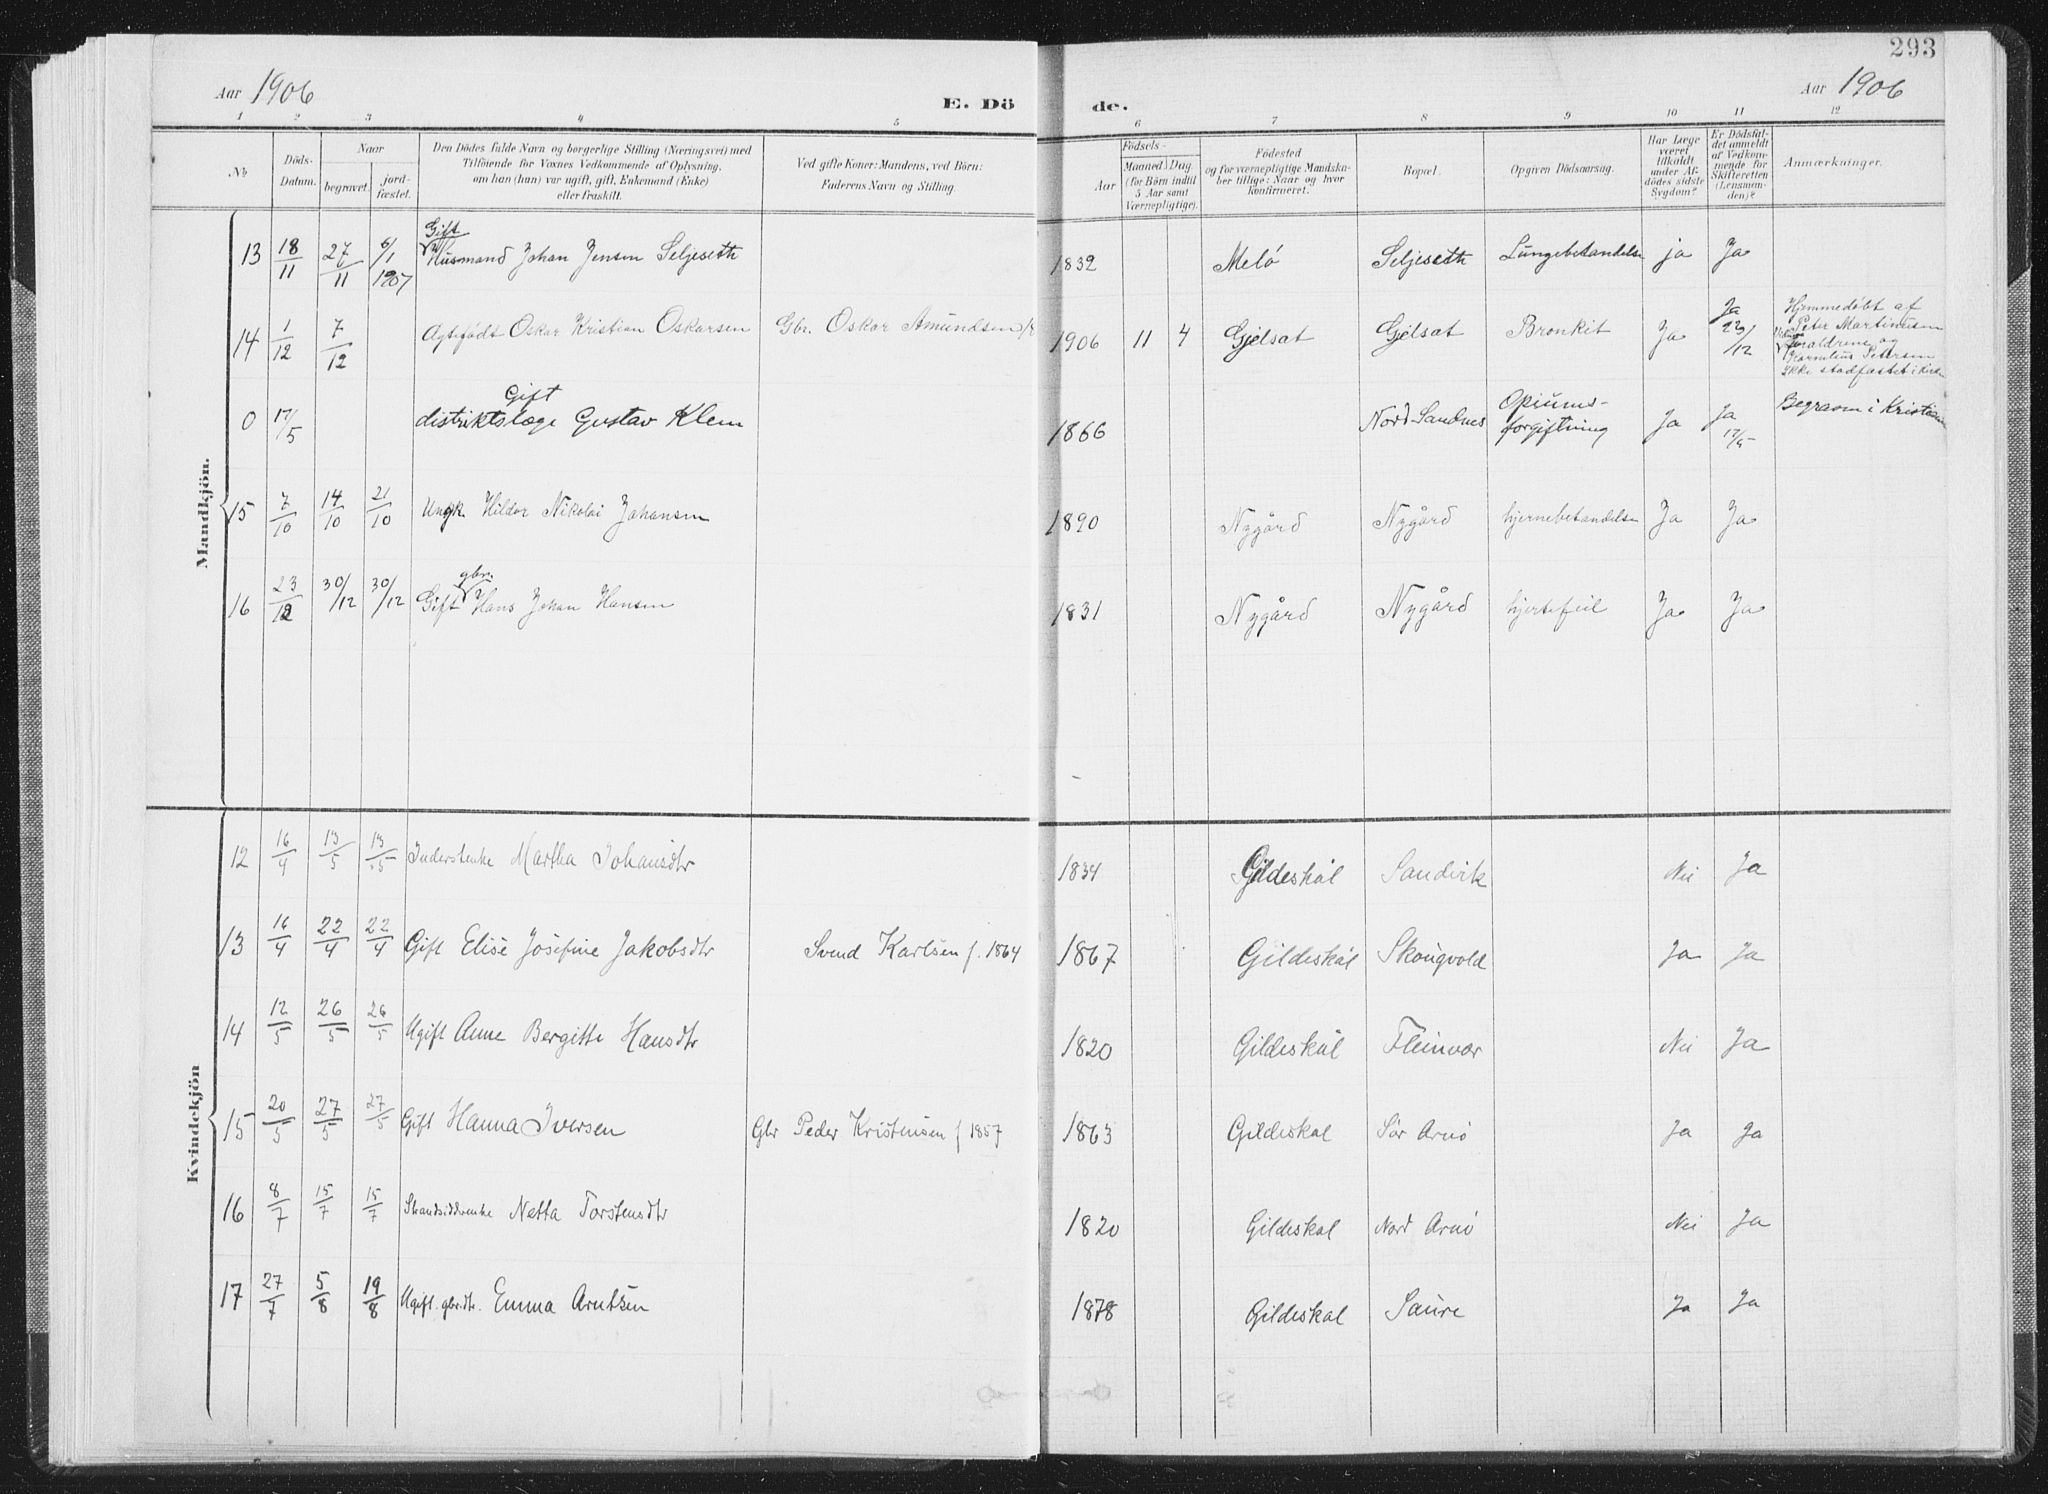 293
Aar 1906
E. Dö
de.
Aar 1906
1 2 3 4 5 6 7 8 9 10 11 12
No
Döds-
Datum.
Naar
begravet.
jord-
fæstet.
Den Dödes fulde Navn og borgerlige Stilling (Næringsvei) med
Tilföiende for Voxnes Vedkommende af Oplysning,
om han (hun) var ugift, gift, Enkemand (Enke)
eller fraskilt.
Ved gifte Koner: Mandens, ved Börn:
Faderens Navn og Stilling.
Födsels-
Aar
Maaned Dag
(for Börn indtil
5 Aar samt
Værnepligtige).
Födested
og for værnepligtige Mandska-
ber tillige: Naar og hvor
konfirmeret.
Bopæl.
Opgiven Dödsaarsag.
Har Læge
været
tilkaldt
under Af-
dödes sidste
Sygdom?
Er Dödsfal-
det anmeldt
af Vedkom-
mende for
Skifteretten
(Lensman-
den)?
Anmærkninger.
Mandkjön.
13 18/11 27/11 6/1 1907 Gift Husmand Johan Jensen Seljeseth 1832 Melö Seljeseth Lungebetændelse ja Ja
14 1/12 7/12 Ægtefødt Oskar Kristian Oskarsen Gbr. Oskar Amundsen 1906 11 4 Gjelsat Gjelsat Bronkit Ja Ja 22/12
Hjemmedøbt af
Peter Martinusen
forældrene og
Kornelius Petersen
Ikke stadfæstet i Kirken
0 17/5 Gift
distriktslæge Gustav Klem 1866 Nord-Sandnes Opiums-
forgiftning Ja Ja 17/5 Begraven i Kristiania
15 7/10 14/10 21/10 Ungk. Hildor Nikolai Johansen 1890 Nygård Nygård hjernebetændelse Ja Ja
16 23/12 30/12 30/12 Gift gbr. Hans Johan Hansen 1831 Nygård Nygård hjertefeil Ja Ja
Kvindekjön
12 16/4 13/5 13/5 Inderstenke Martha Johansdtr 1834 Gildeskål Sandvik Nei Ja
13 16/4 22/4 22/4 Gift Elise Josefine Jakobsdtr Svend Karlsen f. 1864 1867 Gildeskål Skougvold Ja Ja
14 12/5 26/5 26/5 Ugift Anne Bergitte Hansdtr 1820 Gildeskål Fleinvær Nei Ja
15 20/5 27/5 27/5 Gift Hanna Iversen Gbr Peder Kristensen f 1857 1863 Gildeskal Sör Arnö Ja Ja
16 8/7 15/7 15/7 Strandsidderenke Netta Torstensdtr 1820 Gildeskal Nord Arnö Nei Ja
17 27/7 5/8 19/8 Ugift. gbr.dtr. Emma Arntsen 1878 Gildeskal Saure Ja Ja